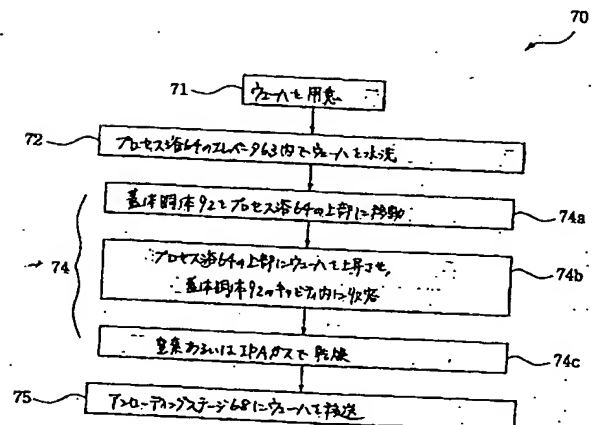 70
71
ウェーハを用意
72
プロセス浴64のエレベータ63内でウェーハを水洗
蓋体胴体92をプロセス浴64の上部に移動
74a
74
プロセス浴64の上部にウェーハを上昇させ,
蓋体胴体92のキャビティ内に収容
74b
窒素あるいはIPAガスで乾燥
74c
75
アンローディングステージ68にウェーハを移送